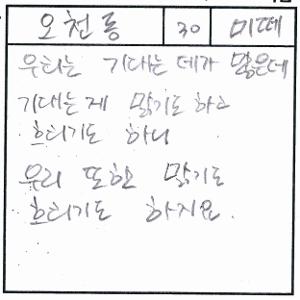 오천동 30 미떼
우리는 기대는 데가 많은데
기대는 게 맑기도 하고
흐리기도 하니
우리 또한 맑기도
흐리기도 하지요.